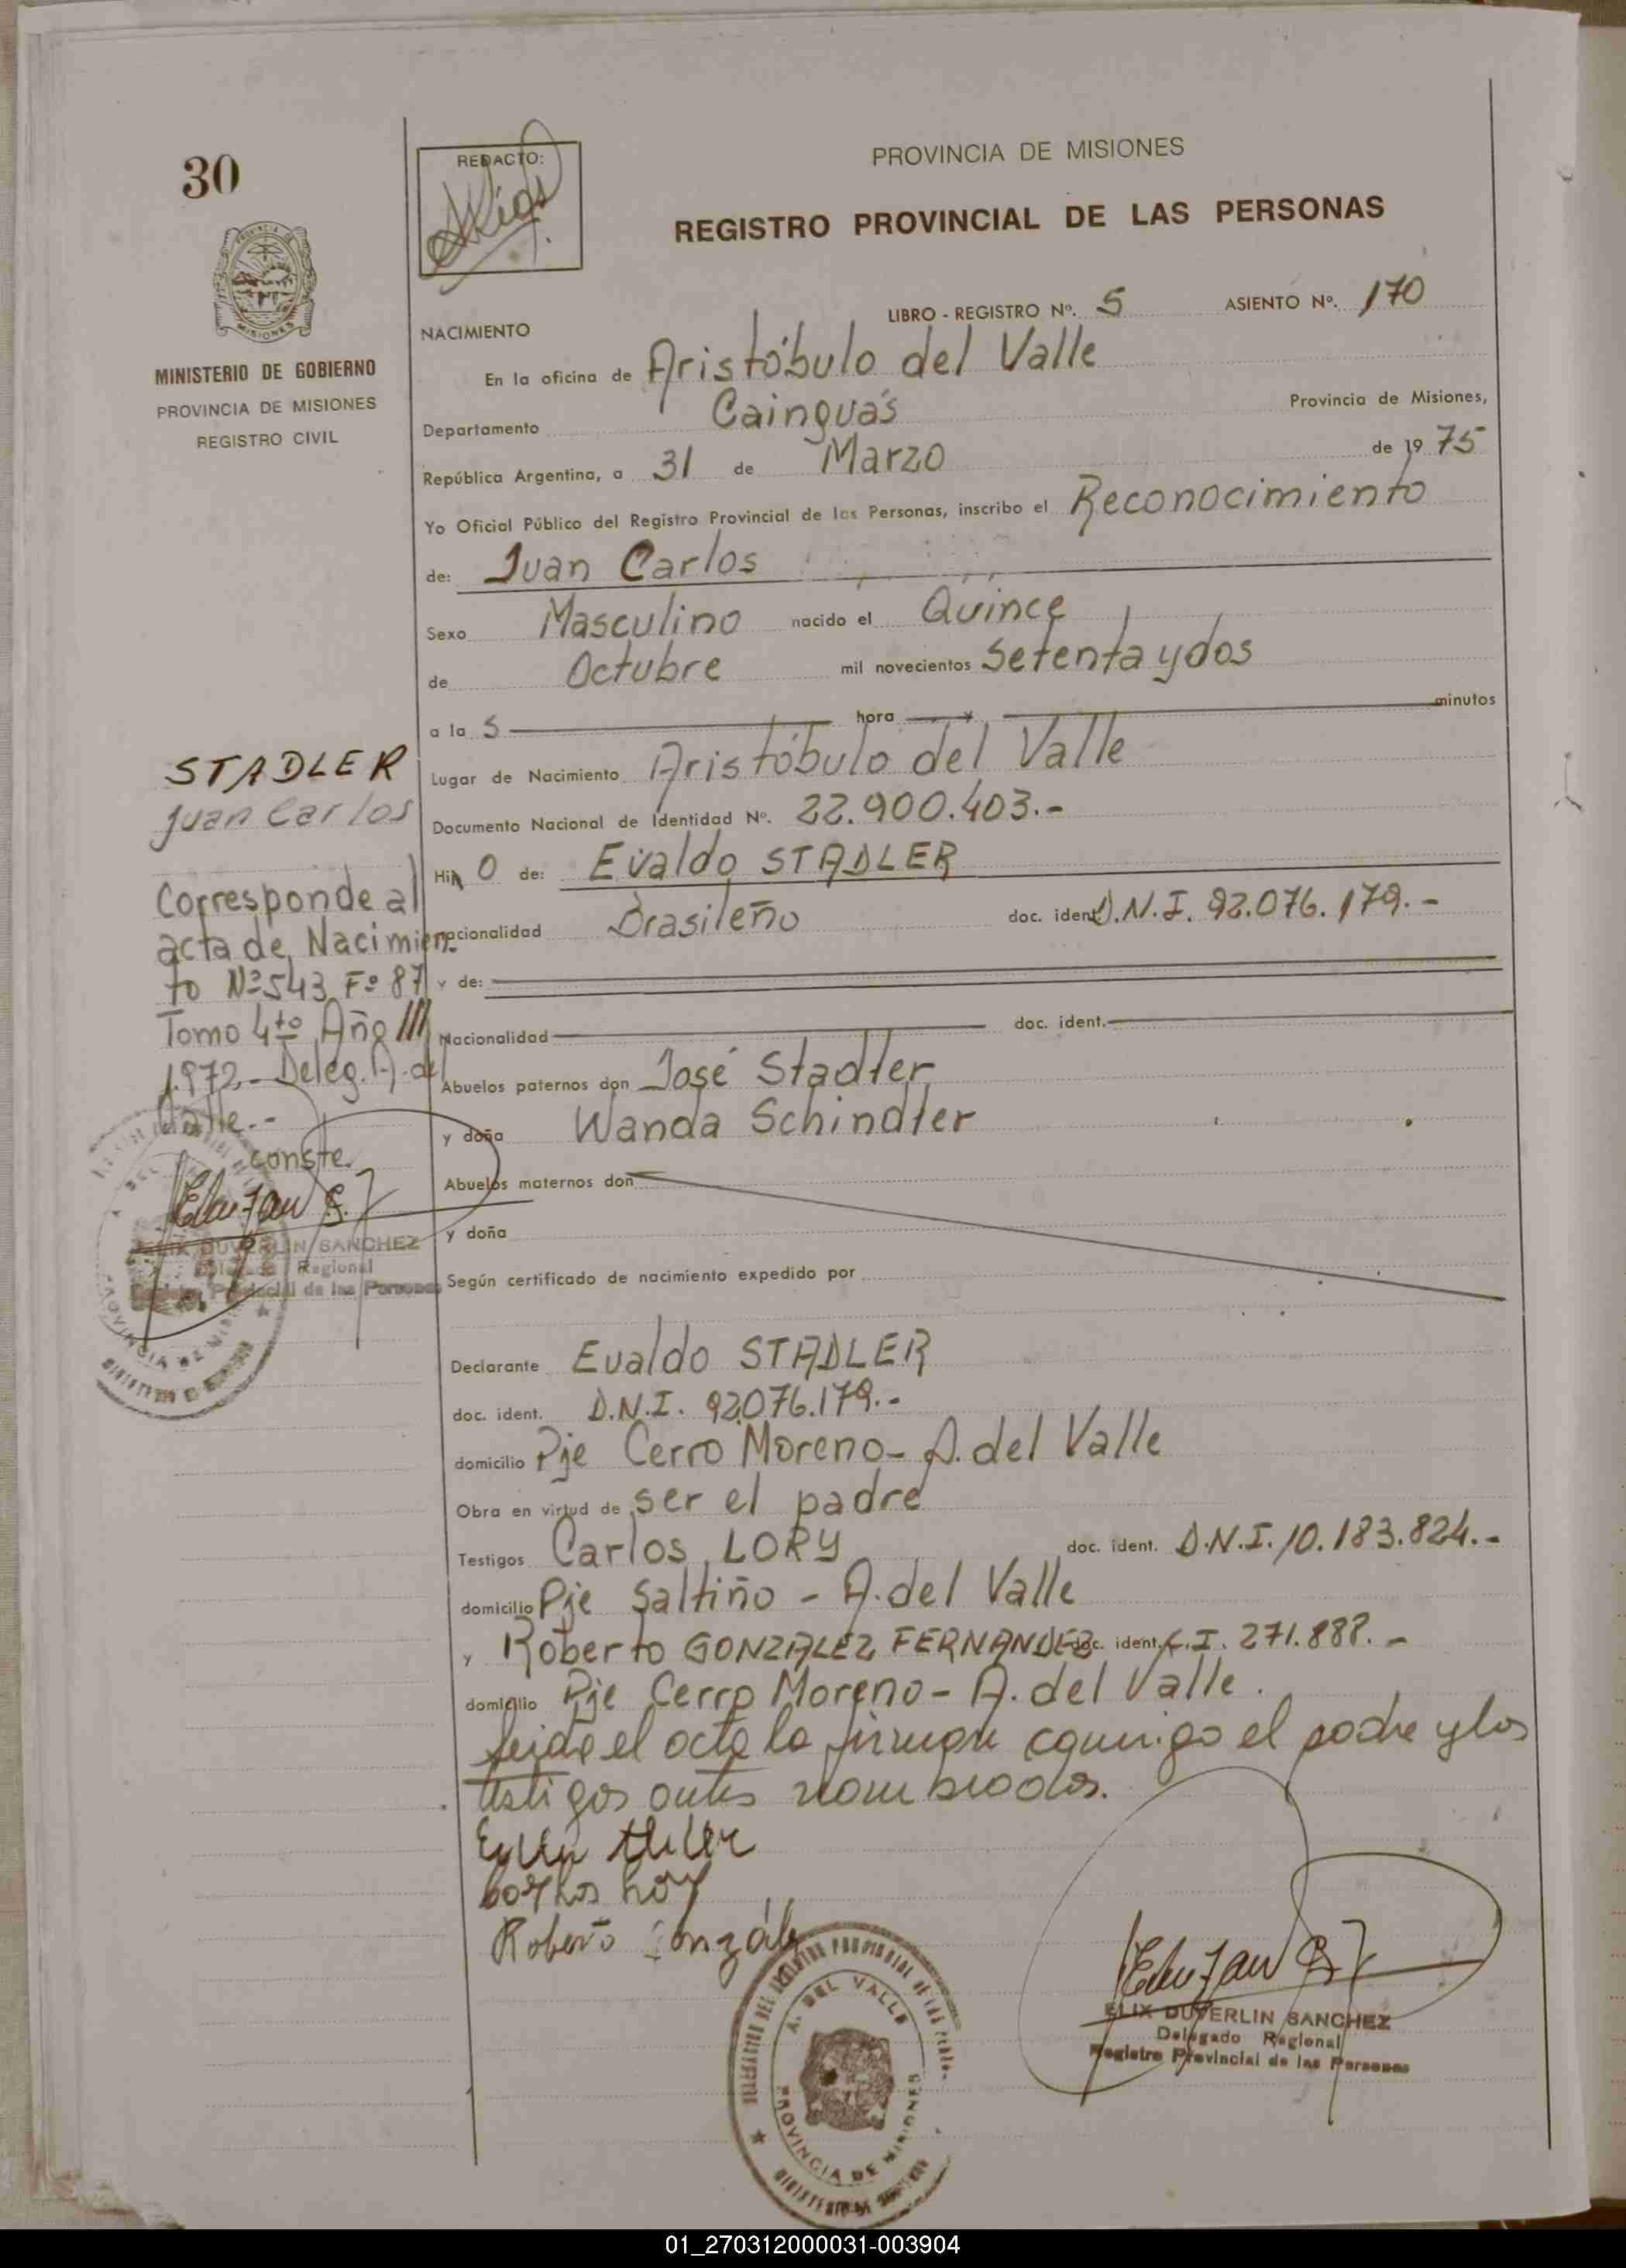 30
REDACTO:
PROVINCIA DE MISIONES
REGISTRO PROVINCIAL DE LAS PERSONAS
MINISTERIO DE GOBIERNO
PROVINCIA DE MISIONES
REGISTRO CIVIL
LIBRO - REGISTRO Nº. 5 ASIENTO Nº. 170
NACIMIENTO
En la oficina de Aristóbulo del Valle
Departamento Cainguás Provincia de Misiones,
República Argentina, a 31 de Marzo de 19 75
Yo Oficial Público del Registro Provincial de las Personas, inscribo el Reconocimiento
de: Juan Carlos
Sexo Masculino nacido el Quince
de Octubre mil novecientos Setenta y dos
a la S hora y minutos
Lugar de Nacimiento Aristóbulo del Valle
Documento Nacional de Identidad Nº. 22.900.403.-
Hij O de: Evaldo STADLER
nacionalidad Brasileño doc. ident. D.N.I. 92.076.179.-
y de:
Nacionalidad doc. ident.
Abuelos paternos don José Stadler
y doña Wanda Schindler
Abuelos maternos don
y doña
Según certificado de nacimiento expedido por
Declarante Evaldo STADLER
doc. ident. D.N.I. 92.076.179.-
domicilio Pje Cerro Moreno- A. del Valle
Obra en virtud de ser el padre
Testigos Carlos LORY doc. ident. D.N.I. 10.183.824.-
domicilio Pje Saltiño - A. del Valle
y Roberto GONZALEZ FERNANDEZ doc. ident. C.I. 271.888.-
domicilio Pje Cerro Moreno- A. del Valle.
Leida el acta la firman conmigo el padre y los
testigos antes nombrados.
Roberto Gonzále
STADLER
Juan Carlos
Corresponde al
acta de Nacimien-
to Nº 543 Fº 87
Tomo 4to Año III
1.972.- Deleg. A. del
Valle.-
conste.
FELIX DUVERLIN SANCHEZ
Delegado Regional
Registro Provincial de las Personas
A. DEL VALLE
PROVINCIA DE MISIONES
ELIX DUVERLIN SANCHEZ
Delegado Regional
Registro Provincial de las Personas
01_270312000031-003904